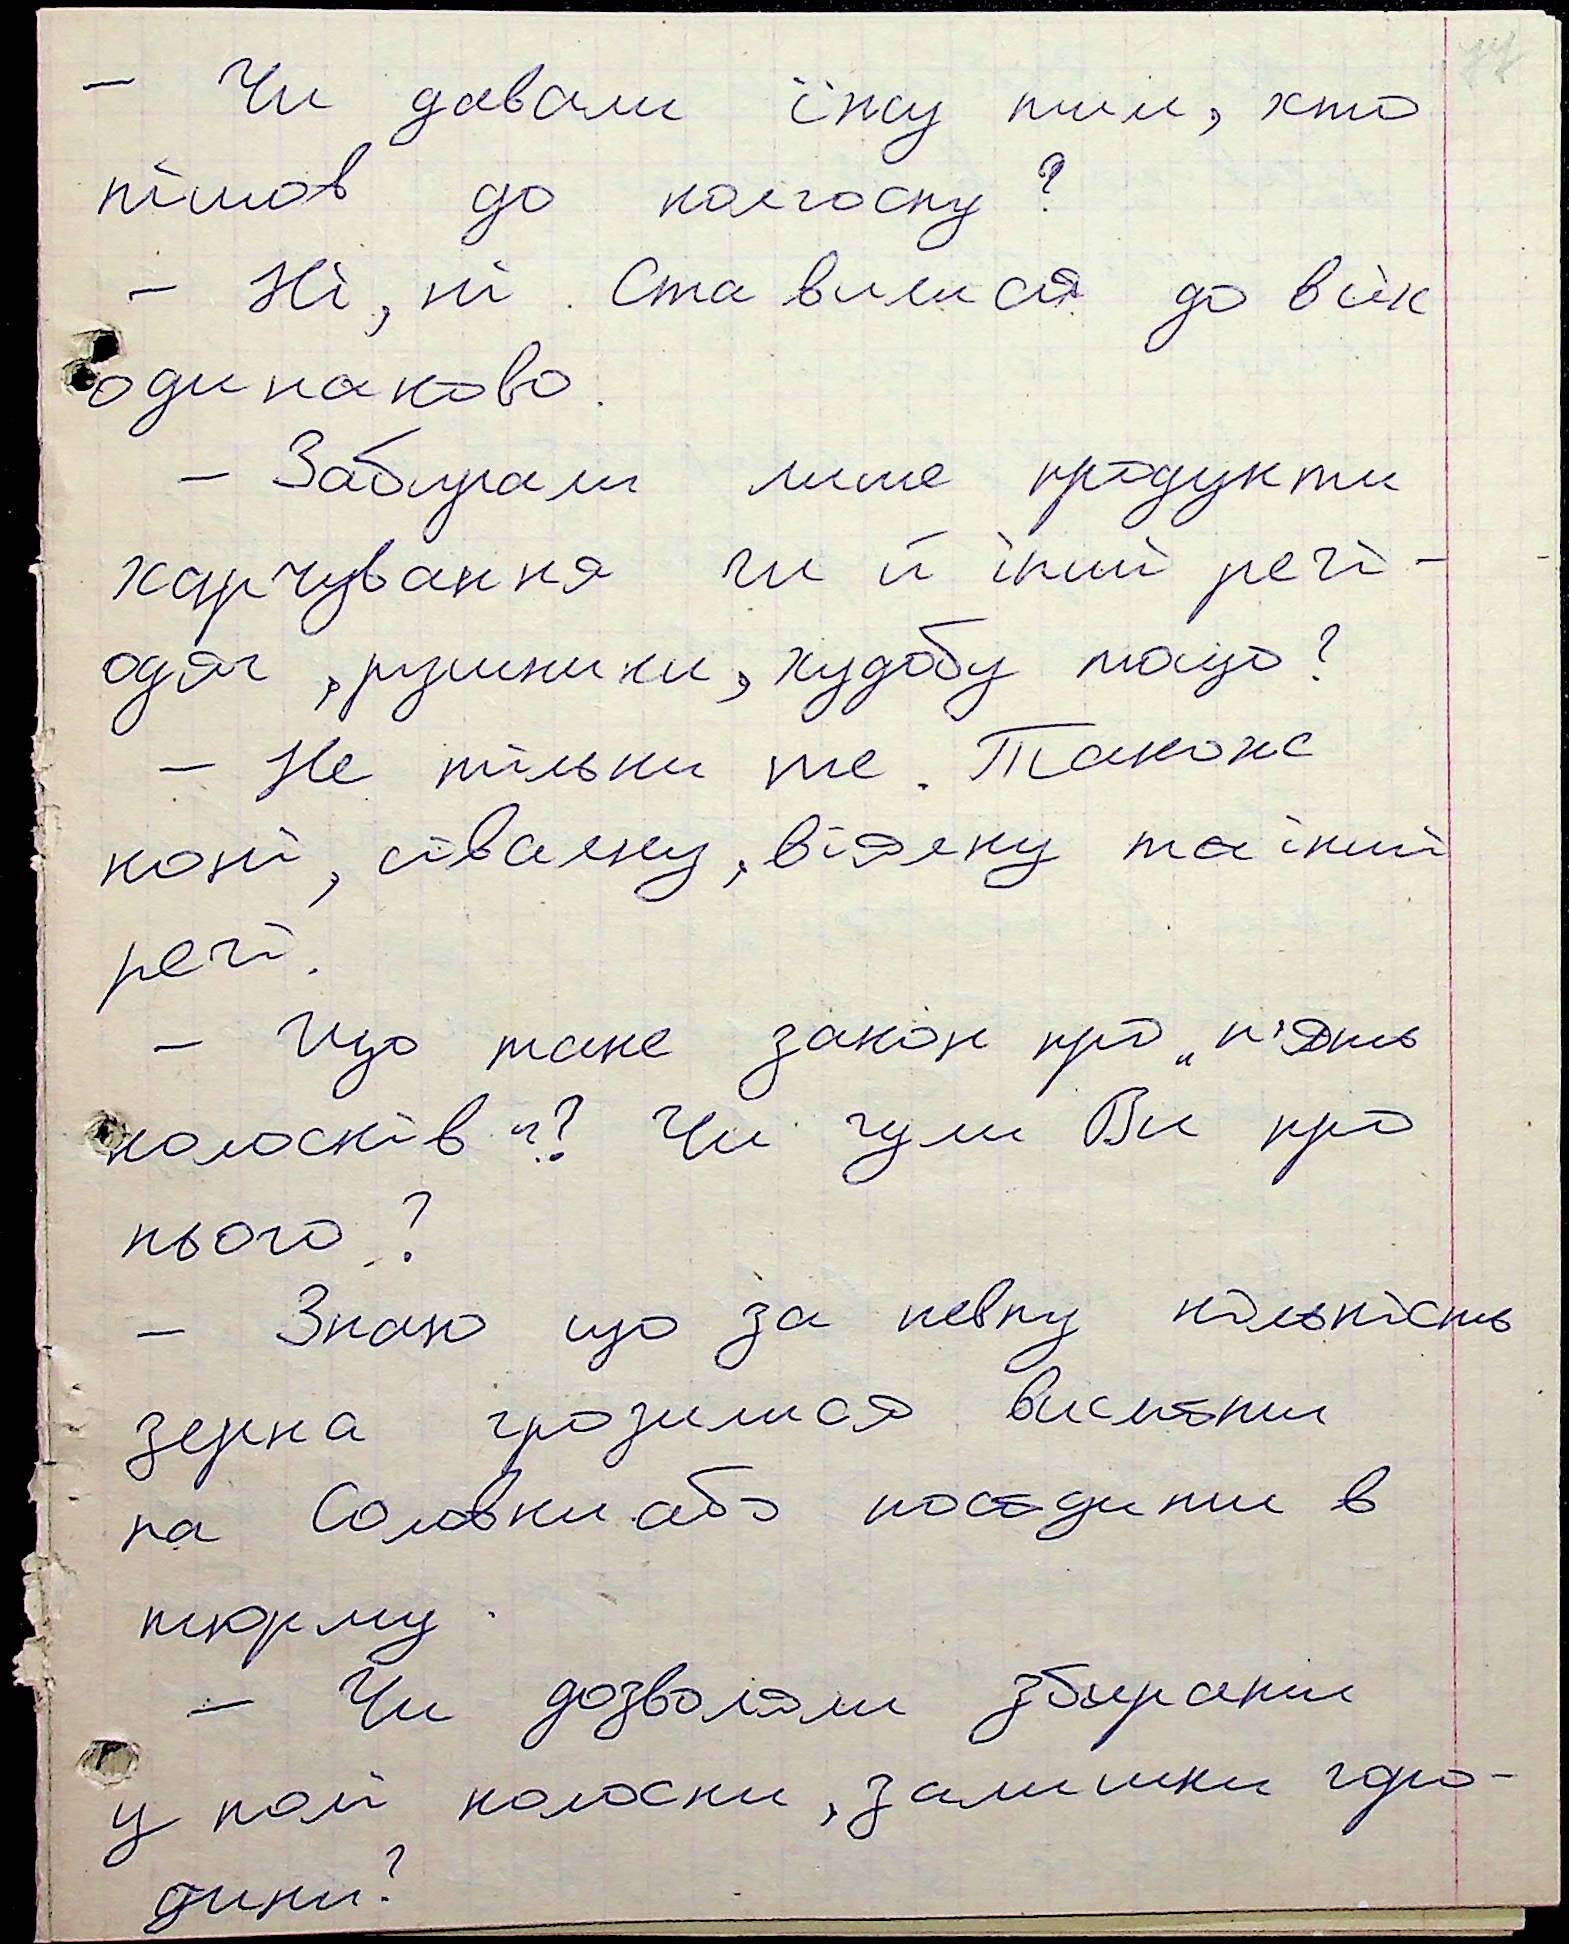 - Чи давали їжу тим, хто
пішов до колгоспу?
- Ні, ні. Ставилися до всіх
одинаково.
- Забирали лише продукти
харчування чи й інші речі -
одяг, рушники, худобу тощо?
- Не тільки те. Також
коні, сівалку, віялку та інші
речі.
- Що таке закон про „п'ять
колосків"? Чи чули Ви про
нього?
- Знаю що за певну кількість
зерна грозилися вислати
на Соловки або посадити в
тюрму.
- Чи дозволяли збирати
у полі колоски, залишки горо-
дини?